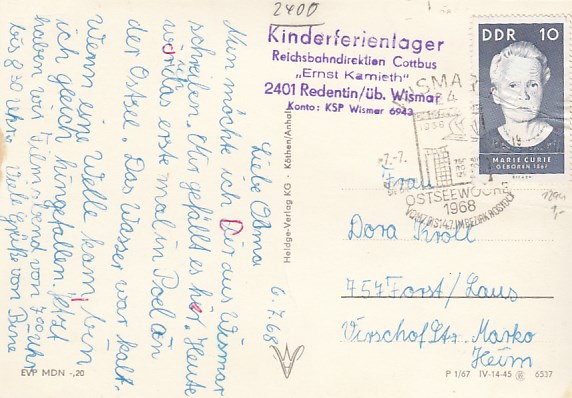 2400
Kinderferienlager
Reichsbahndirektion Cottbus
„Ernst Kamieth"
2401 Redentin/üb. Wismar
Konto: KSP Wismar 6943
DDR 10
MARIE CURIE
GEBOREN 1867
WISMAR
24
-7.-7.
OSTSEEWOCHE
1968
VOM 7. BIS 14.7. IM BEZIRK ROSTOCK
6.7.68
Liebe Oma
Nun möchte ich Dir aus Wismar
schreiben. Mir gefällt es hier. Heute
war ich das erste mal in Poel an
der Ostsee. Das Wasser war kalt.
Wenn eine Welle kam, bin
ich gleich hingefallen. Jetzt
haben wir Filmabend von 7 00 Uhr
bis 8 30 Uhr. Viele Grüße von Bine
Heldge-Verlag KG · Köthen/Anhalt
Frau
Dora Kroll
757 Forst/Laus
Virschof Str. Marko
Heim
EVP MDN -,20
P 1/67 IV-14-45 6537